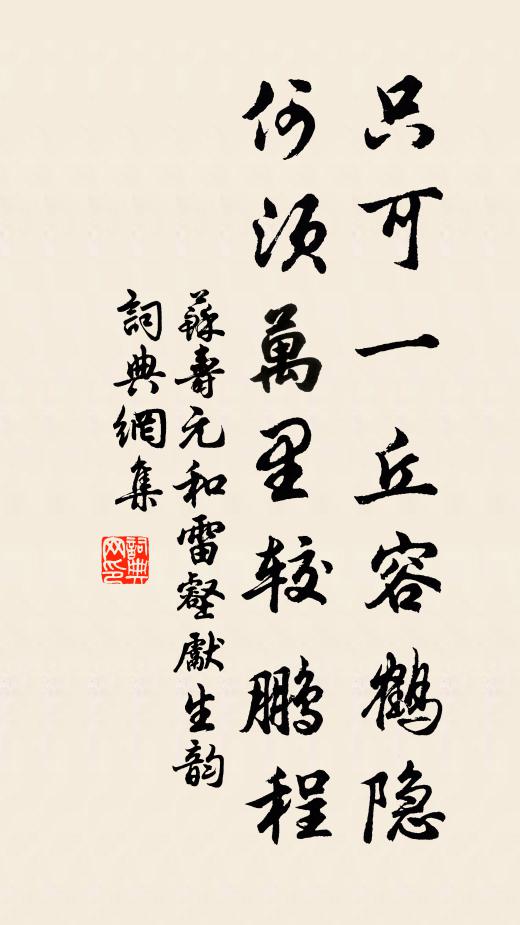 只可一丘容鹤隐
何须萬里较鹏程
蘇壽元和雷壑獻生韵
詞典網集
詞典网印